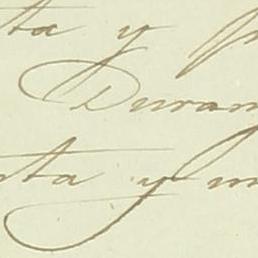 ta y
Duran
nta y m